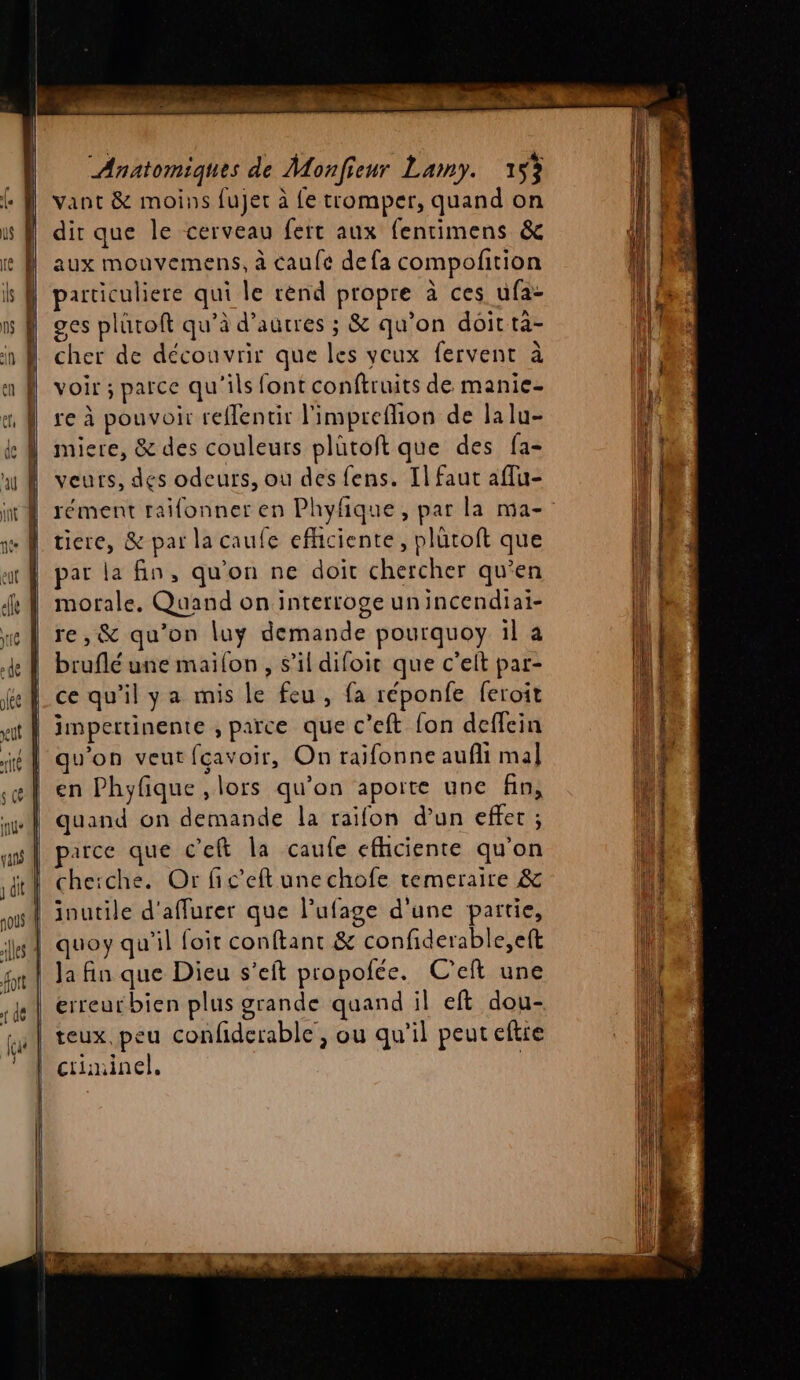 Anatomiques de Monſieur Lamy. 153
vant & moins ſujet à ſe tromper, quand on
dit que le cerveau ſert aux ſentimens &
aux mouvemens, à cauſe de ſa compoſition
particuliere qui le rend propre à ces uſa-
ges plûtoſt qu'à d'autres ; & qu'on doit tâ-
cher de découvrir que les yeux ſervent à
voir ; parce qu'ils ſont conſtruits de manie-
re à pouvoir reſſentir l'impreſſion de la lu-
miere, & des couleurs plûtoſt que des ſa-
veurs, des odeurs, ou des ſens. Il faut aſſu-
rément raiſonner en Phyſique, par la ma-
tiere, & par la cauſe efficiente, plûtoſt que
par la fin, qu'on ne doit chercher qu'en
morale. Quand on interroge un incendiai-
re, & qu'on luy demande pourquoy il a
bruſlé une maiſon, s'il diſoit que c'eſt par-
ce qu'il y a mis le feu, ſa réponſe ſeroit
impertinente, parce que c'eſt ſon deſſein
qu'on veut ſçavoir, On raiſonne auſſi mal
en Phyſique, lors qu'on aporte une fin,
quand on demande la raiſon d'un effet ;
parce que c'eſt la cauſe efficiente qu'on
cherche. Or ſi c'eſt une choſe temeraire &
inutile d'aſſurer que l'uſage d'une partie,
quoy qu'il ſoit conſtant & conſiderable, eſt
la fin que Dieu s'eſt propoſée. C'eſt une
erreur bien plus grande quand il eſt dou-
teux, peu conſiderable, ou qu'il peut eſtre
criminel.